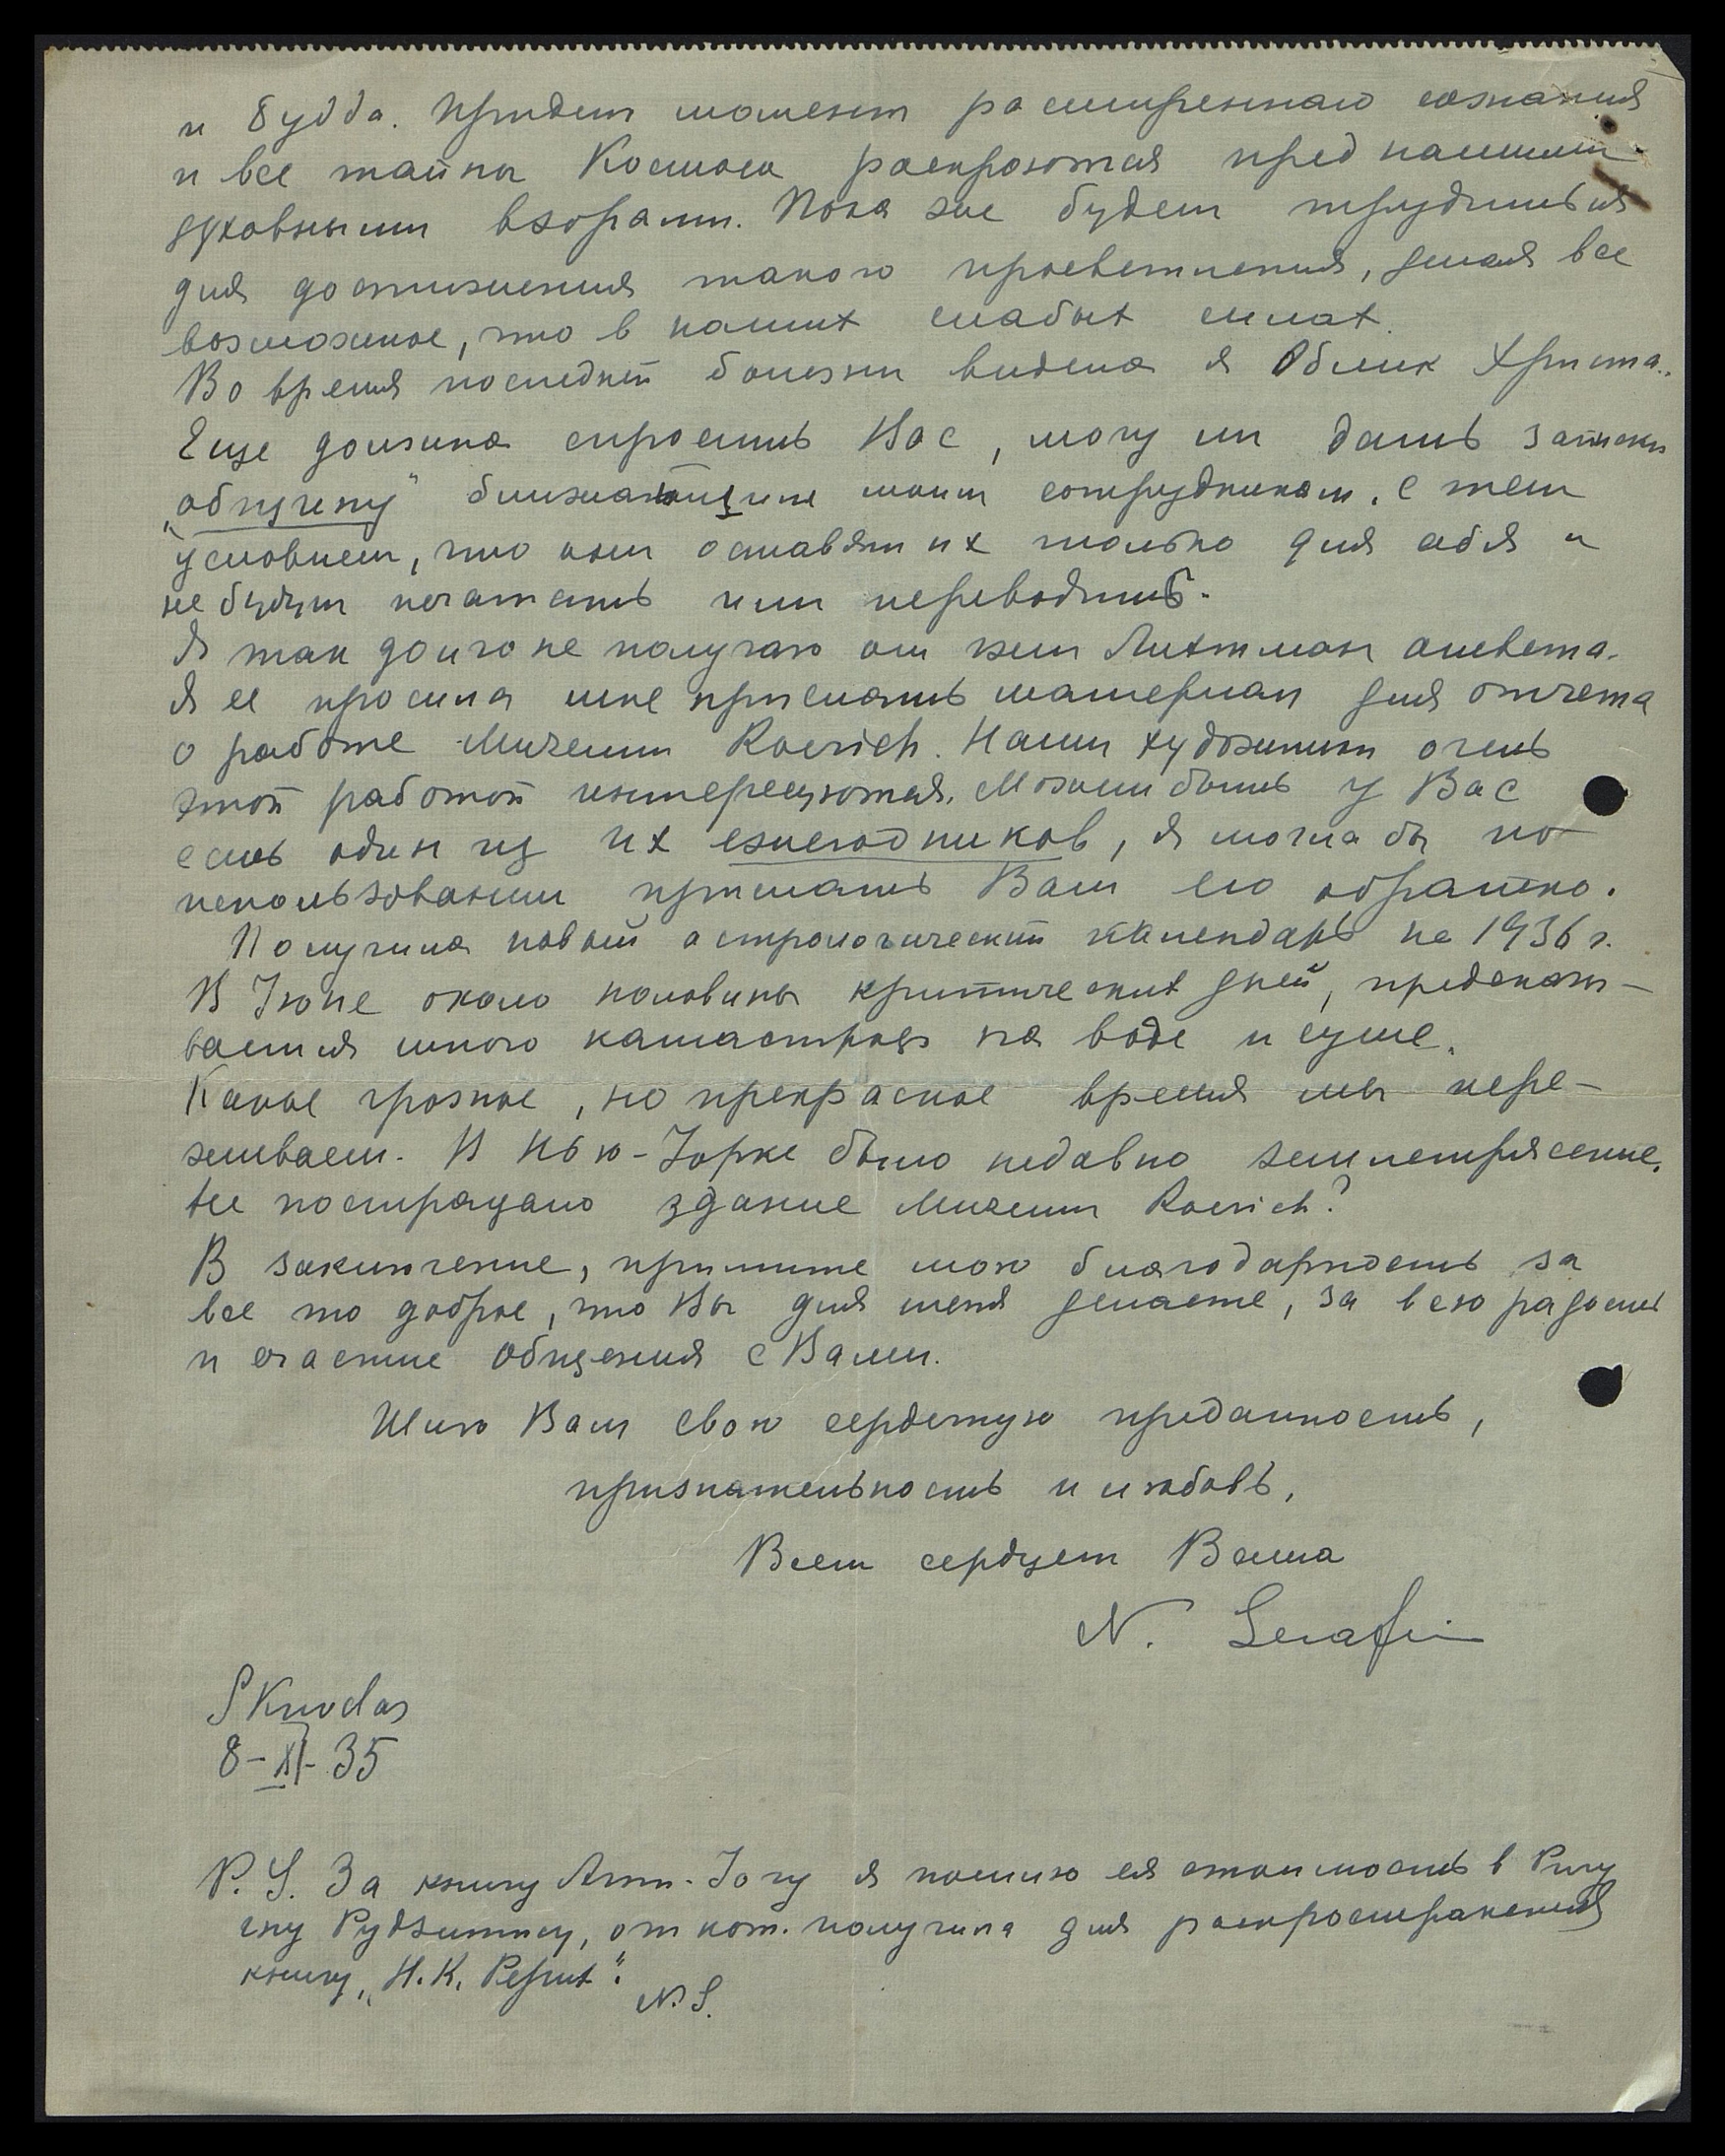 и Будда. Придет момент расширенного сознания
и все тайны Космоса раскроются пред нашими
духовными взорами. Пока же будем трудиться
для достижения такого просветления, делая все
возможное, что в наших слабых силах.
Во время последней болезни видела я Облик Христа.
Еще должна спросить Вас, могу ли дать записки
„общину" ближайшим моим сотрудникам. С тем
условием, что они оставят их только для себя и
не будут печатать или переводить.
Я так долго не получаю от гжи Лихтман ответа.
Я ее просила мне прислать материал для отчета
о работе Музеит Roerich. Наши художники очень
этой работой интересуются. Может быть у Вас
есть один из их ежегодников, я могла бы по
использовании прислать Вам его обратно.
Получила новый астрологический календарь на 1936 г.
В Июне около половины критических дней, предсказы-
вается много катастроф на воде и суше.
Какое грозное, но прекрасное время мы пере-
живаем. В Нью-Iорке было недавно землетрясение.
Не пострадало здание Музеит Roerich?
В заключение, примите мою благодарность за
все то доброе, что Вы для меня делаете, за всю радость
и счастие общения с Вами.
Шлю Вам свою сердечную преданность,
признательность и любовь,
Всем сердцем Ваша
N. Serafin
Skuodas
8-XI-35
P.S. За книгу Агни-Iогу я пошлю ея стоимость в Ригу
гну Рудзитису, от кот. получила для распространения
книгу „Н.К. Рерих".
N.S.